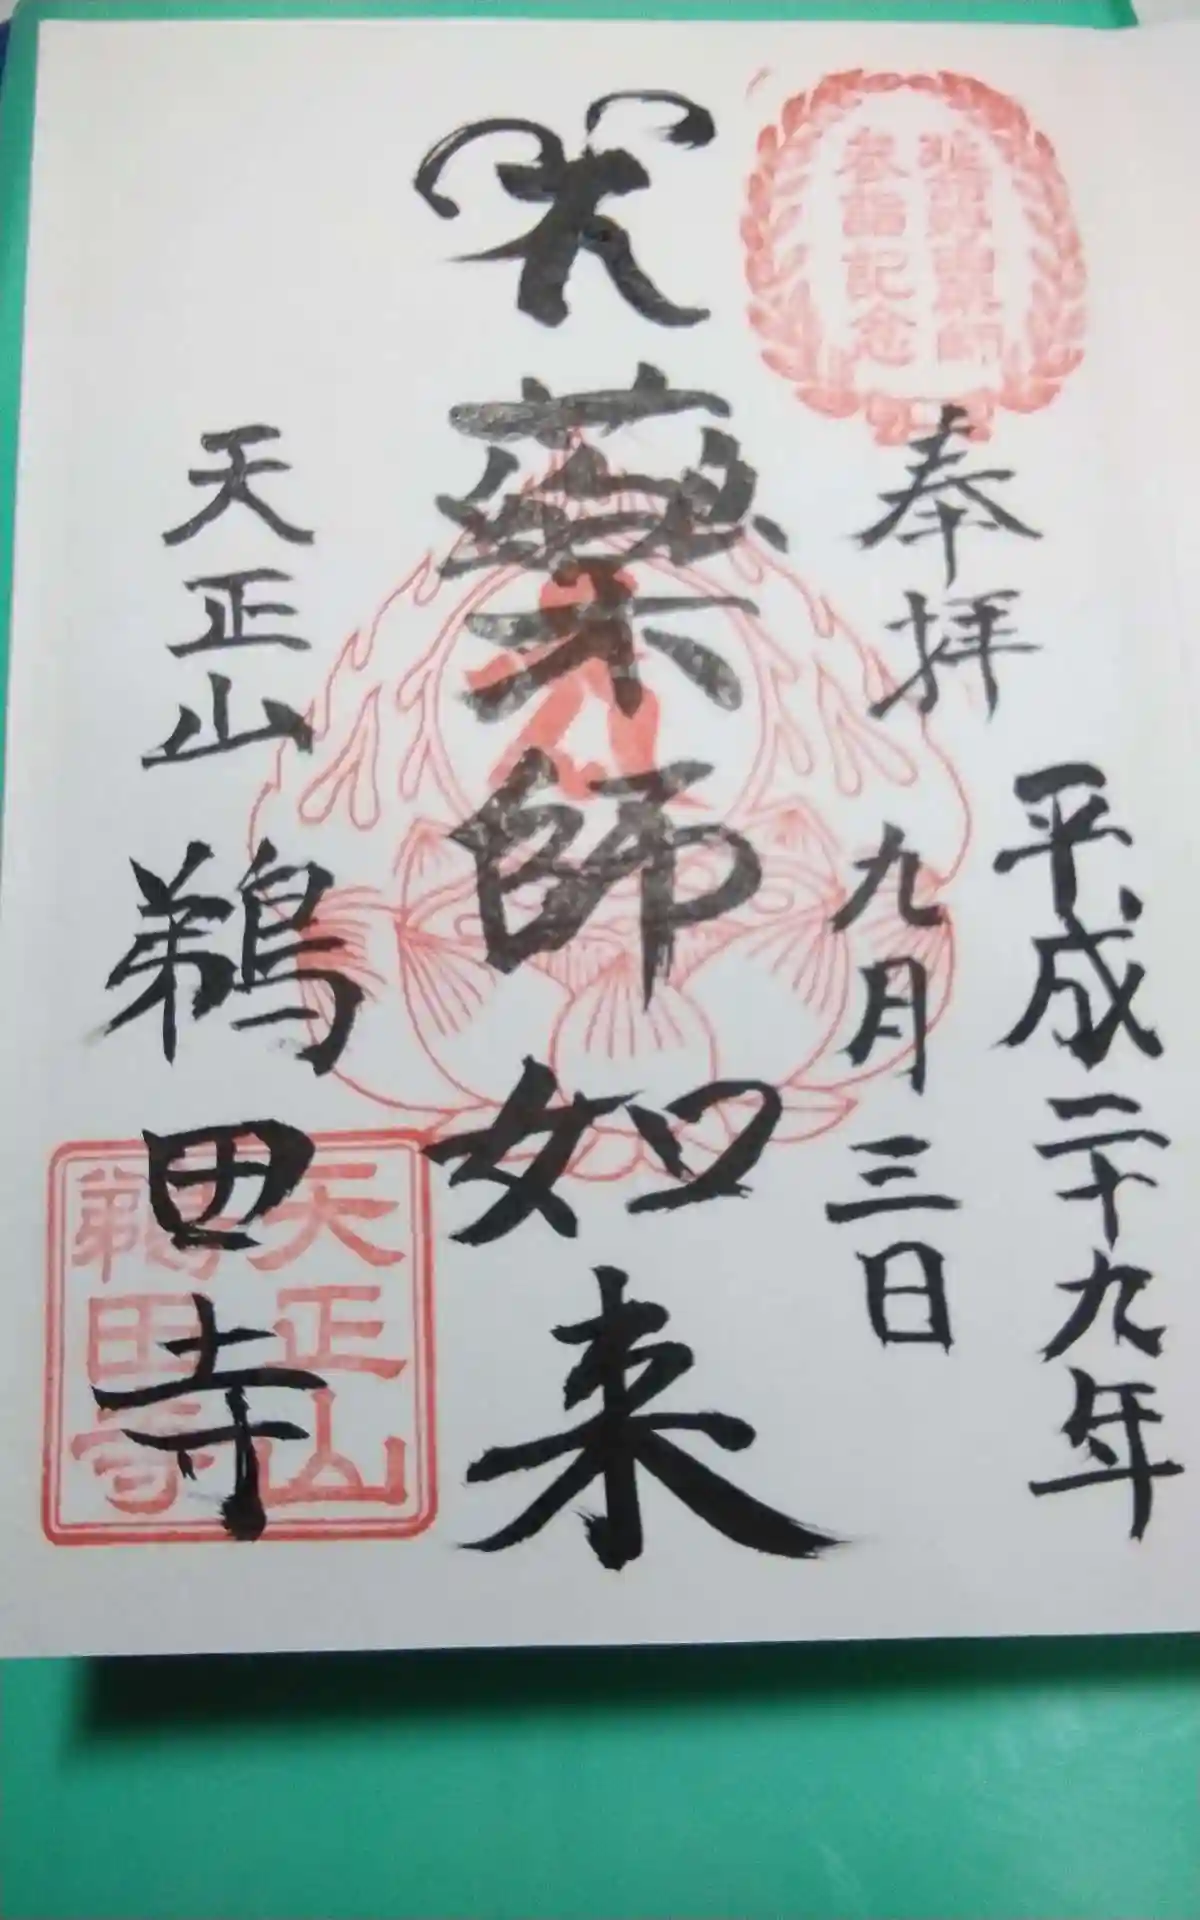 参詣記念
奉拝
平成二十九年
九月三日
薬師如来
天正山
鵜田寺
天正山
鵜田寺